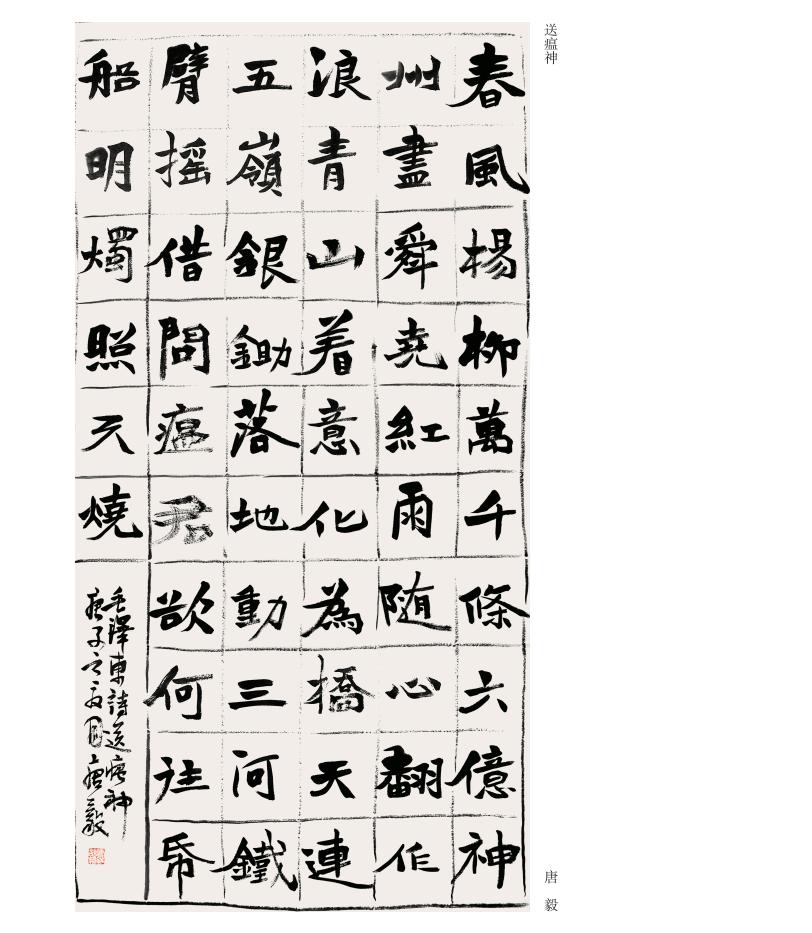 送瘟神
唐毅
春風楊柳萬千條六億神
州盡舜堯紅雨随心翻作
浪青山着意化為橋天連
五嶺銀鋤落地動三河鐵
臂摇借問瘟君欲何往帋
船明燭照天燒
毛澤東詩送瘟神
庚子之夏月唐毅